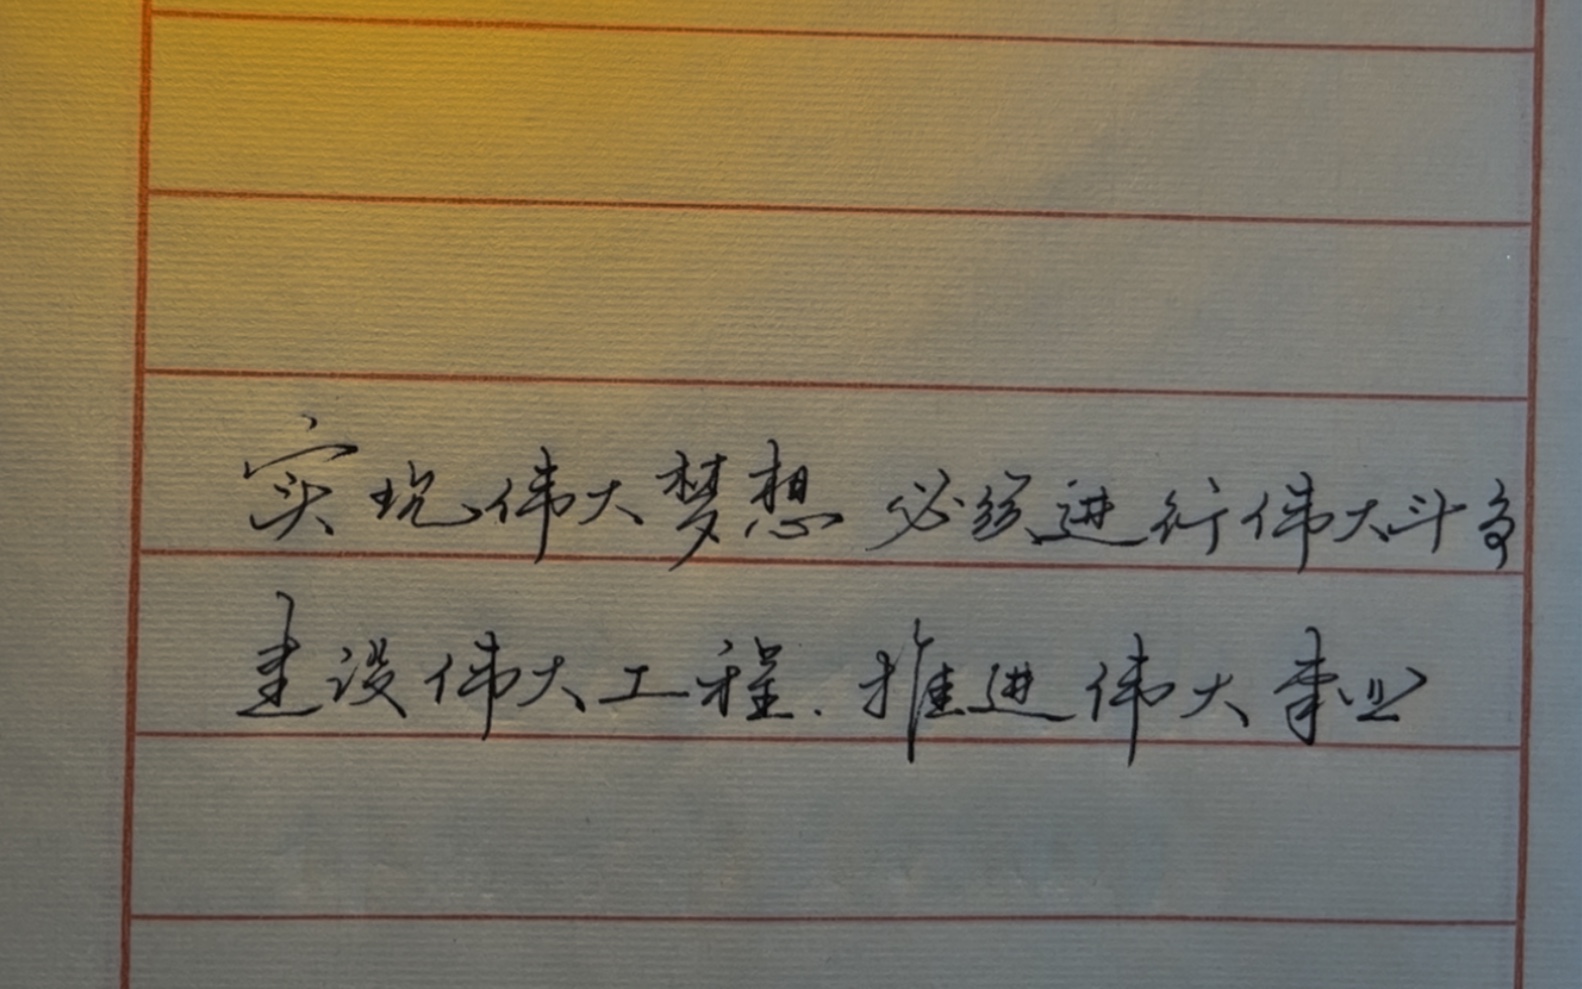 实现伟大梦想 必须进行伟大斗争
建设伟大工程.推进伟大事业